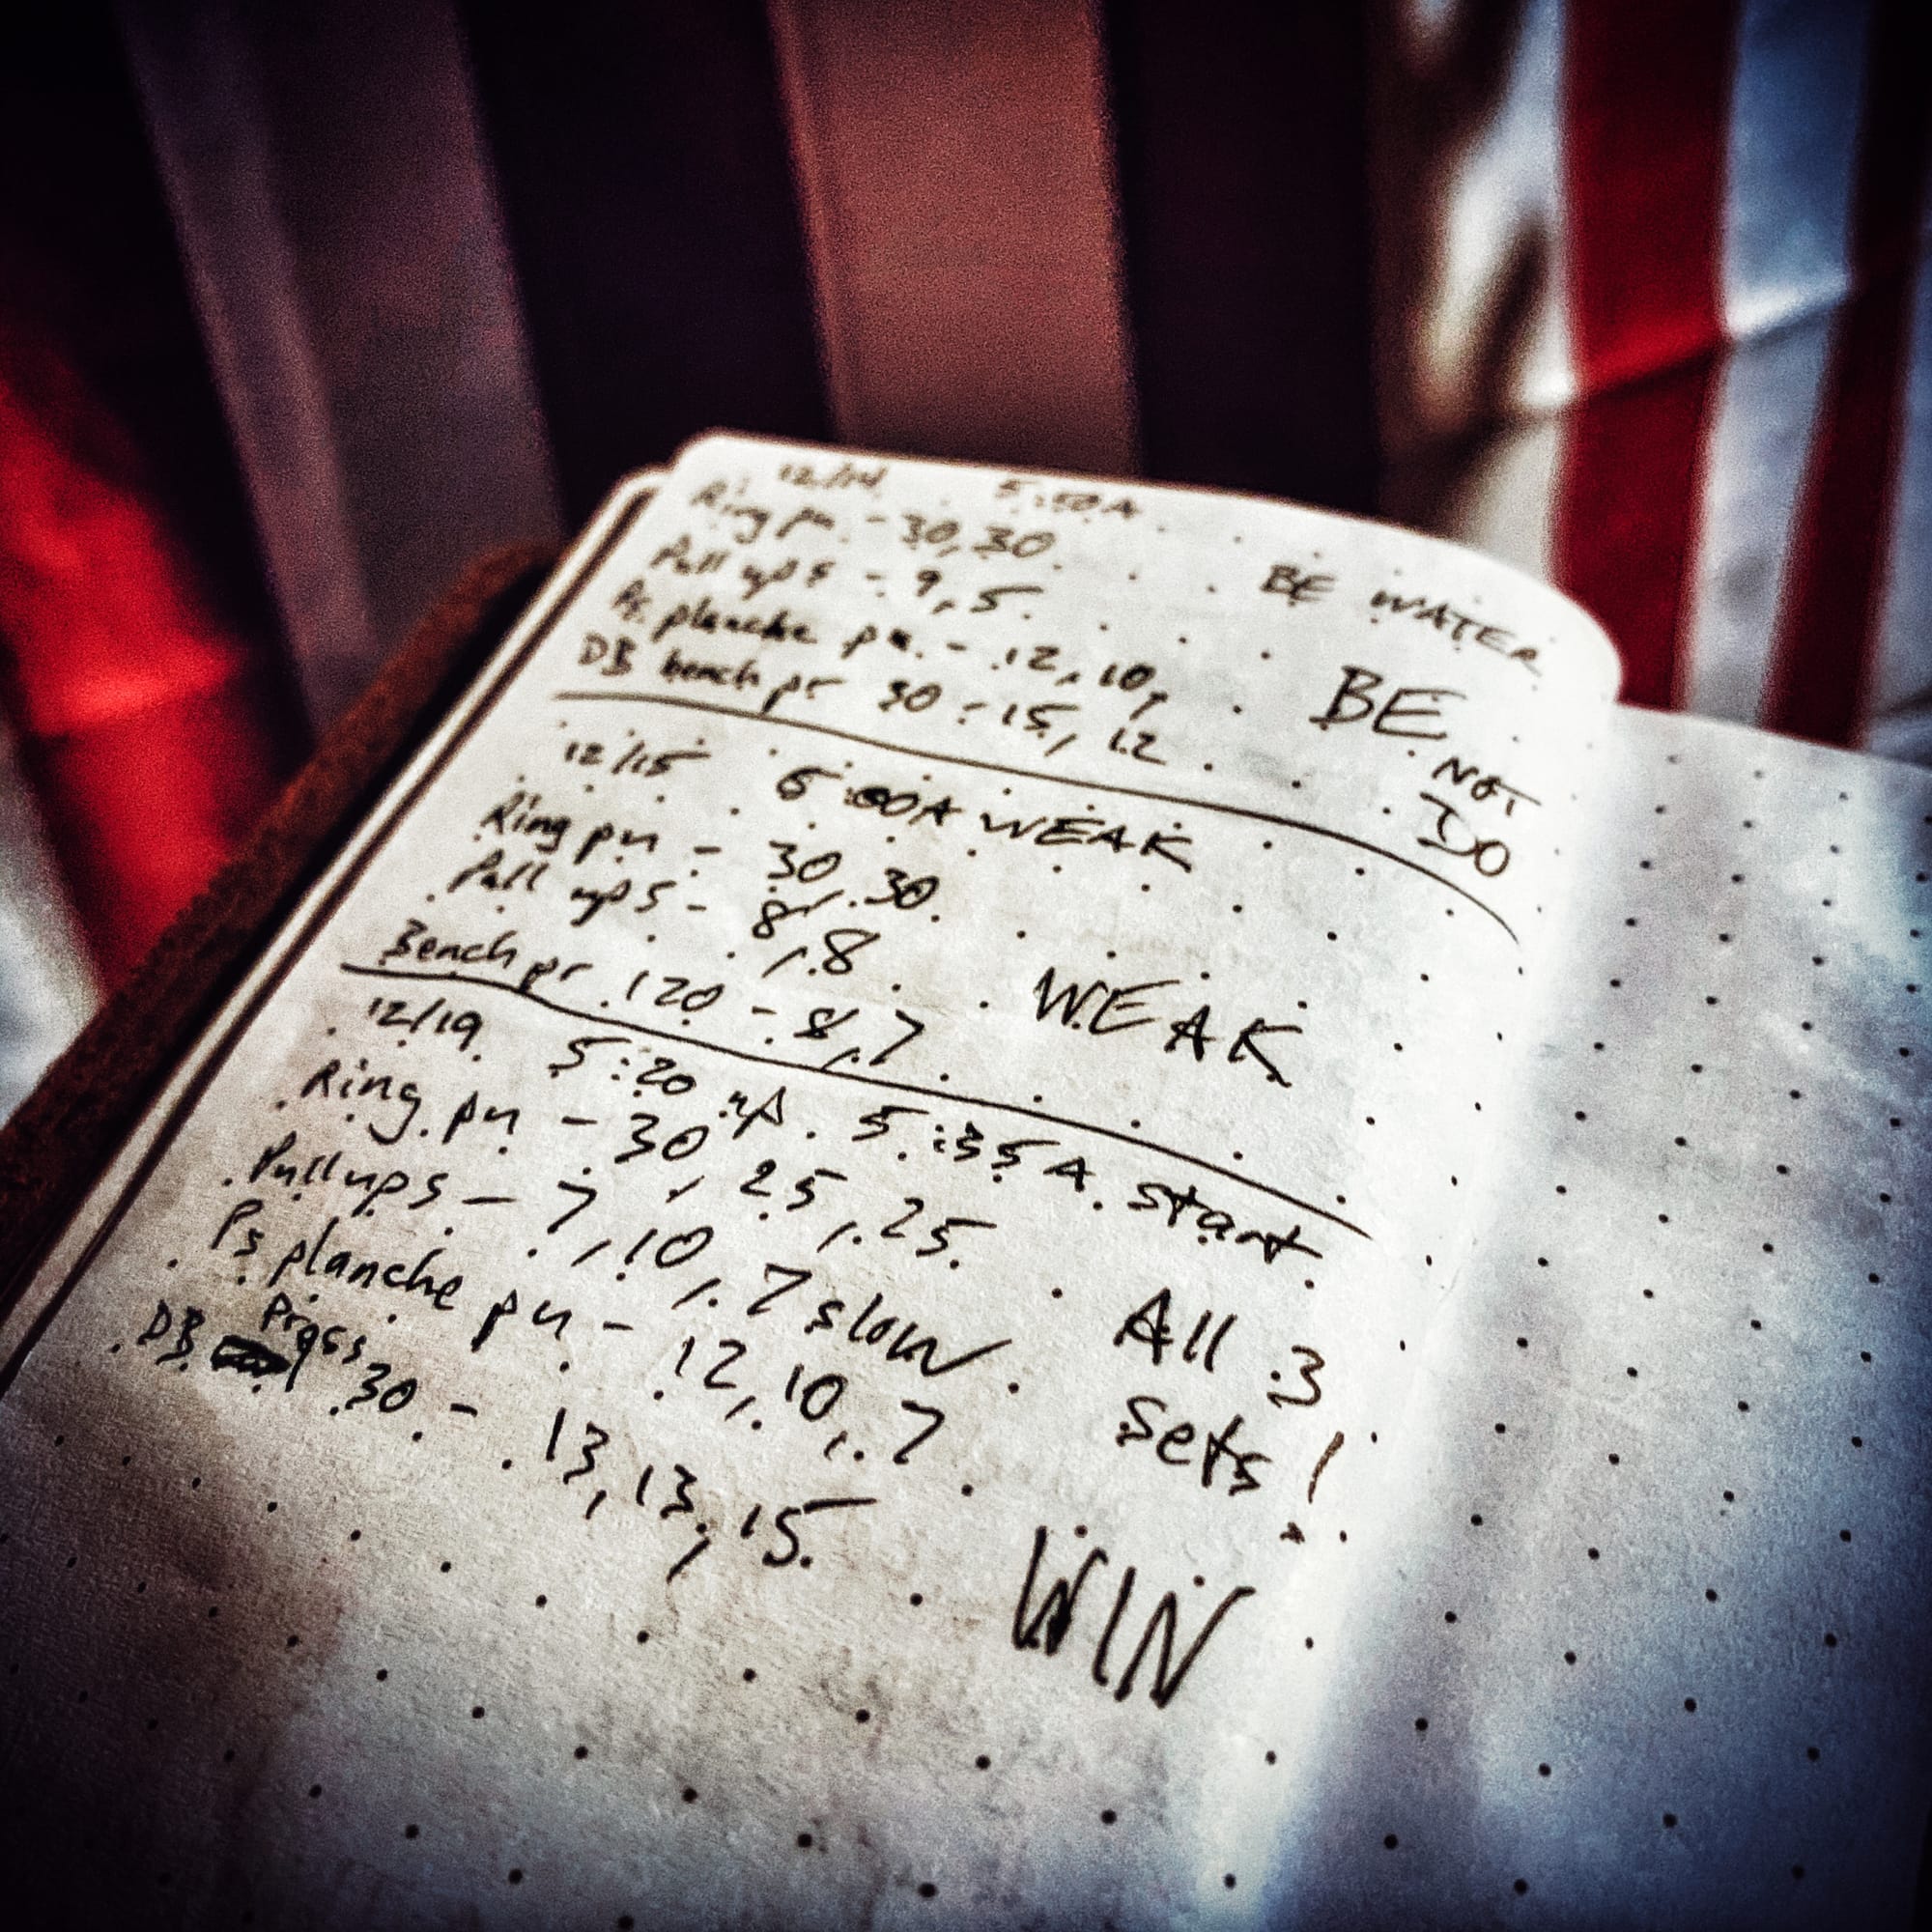 12/14 5:50A
Ring pu. - 30, 30.
BE WATER
Pull ups - 9, 5.
Ps planche pu. - 12, 10,
BE
DB bench pr 30 - 15, 12
NOT
DO
12/15 6:00A WEAK
Ring pu - 30, 30.
Pull ups - 8, 8
Bench pr 120 - 8, 7
WEAK
12/19 5:20 up. 5:35A. start
Ring pu - 30, 25, 25.
Pullups - 7, 10, 7 slow
Ps planche pu - 12, 10, 7
DB press 30 - 13, 13, 15.
All 3
Sets!
WIN